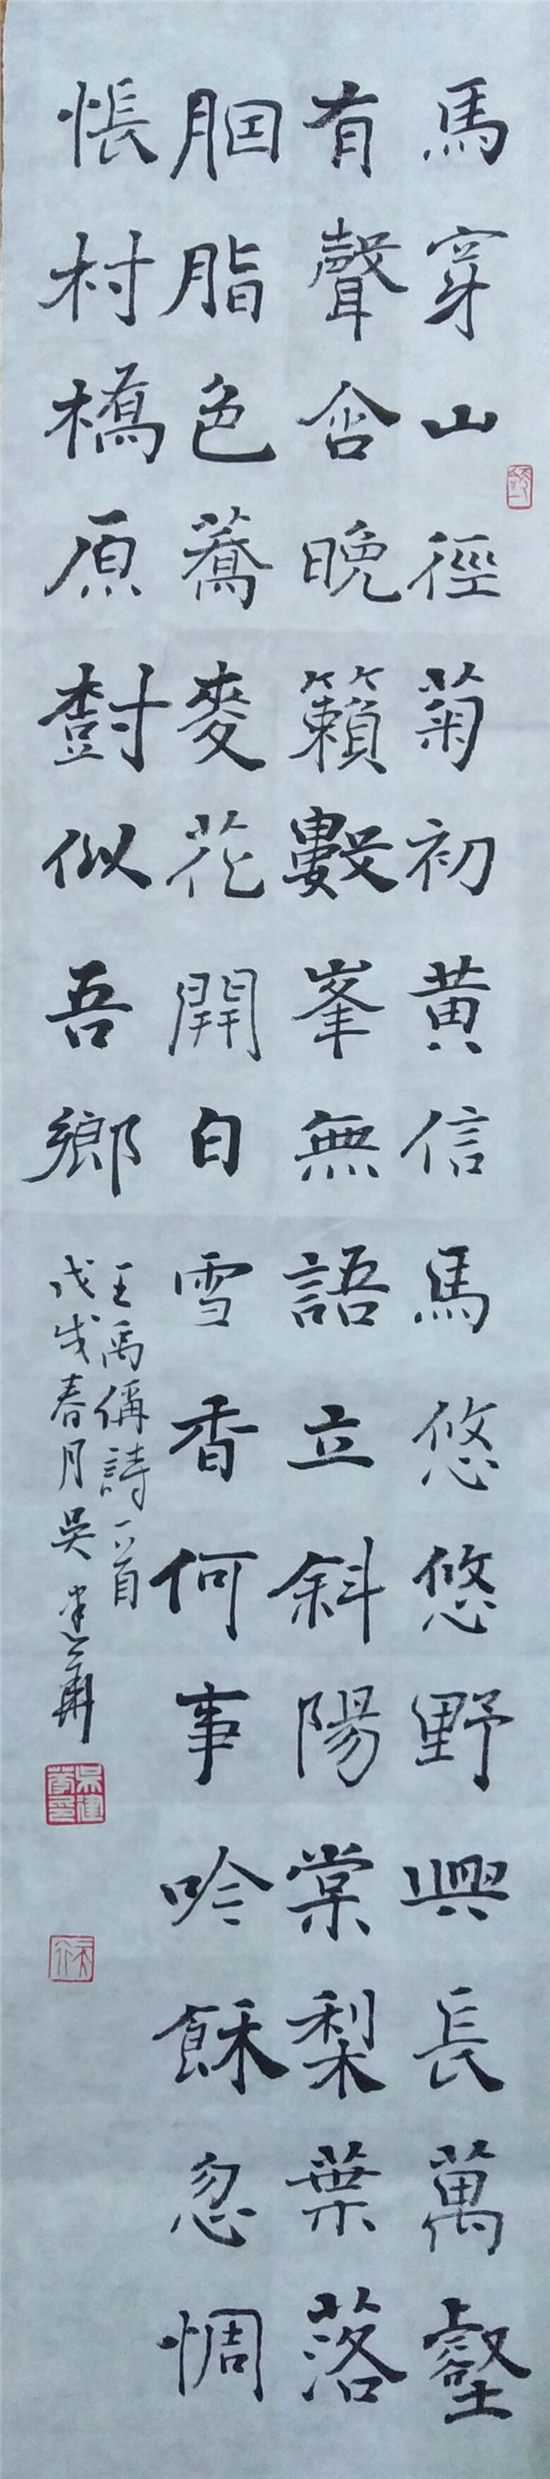 馬穿山徑菊初黃信馬悠悠野興長萬壑
有聲含晚籟數峯無語立斜陽棠梨葉落
胭脂色蕎麥花開白雪香何事吟餘忽惆
悵村橋原樹似吾鄉
王禹偁詩一首
戊戌春月吴建華